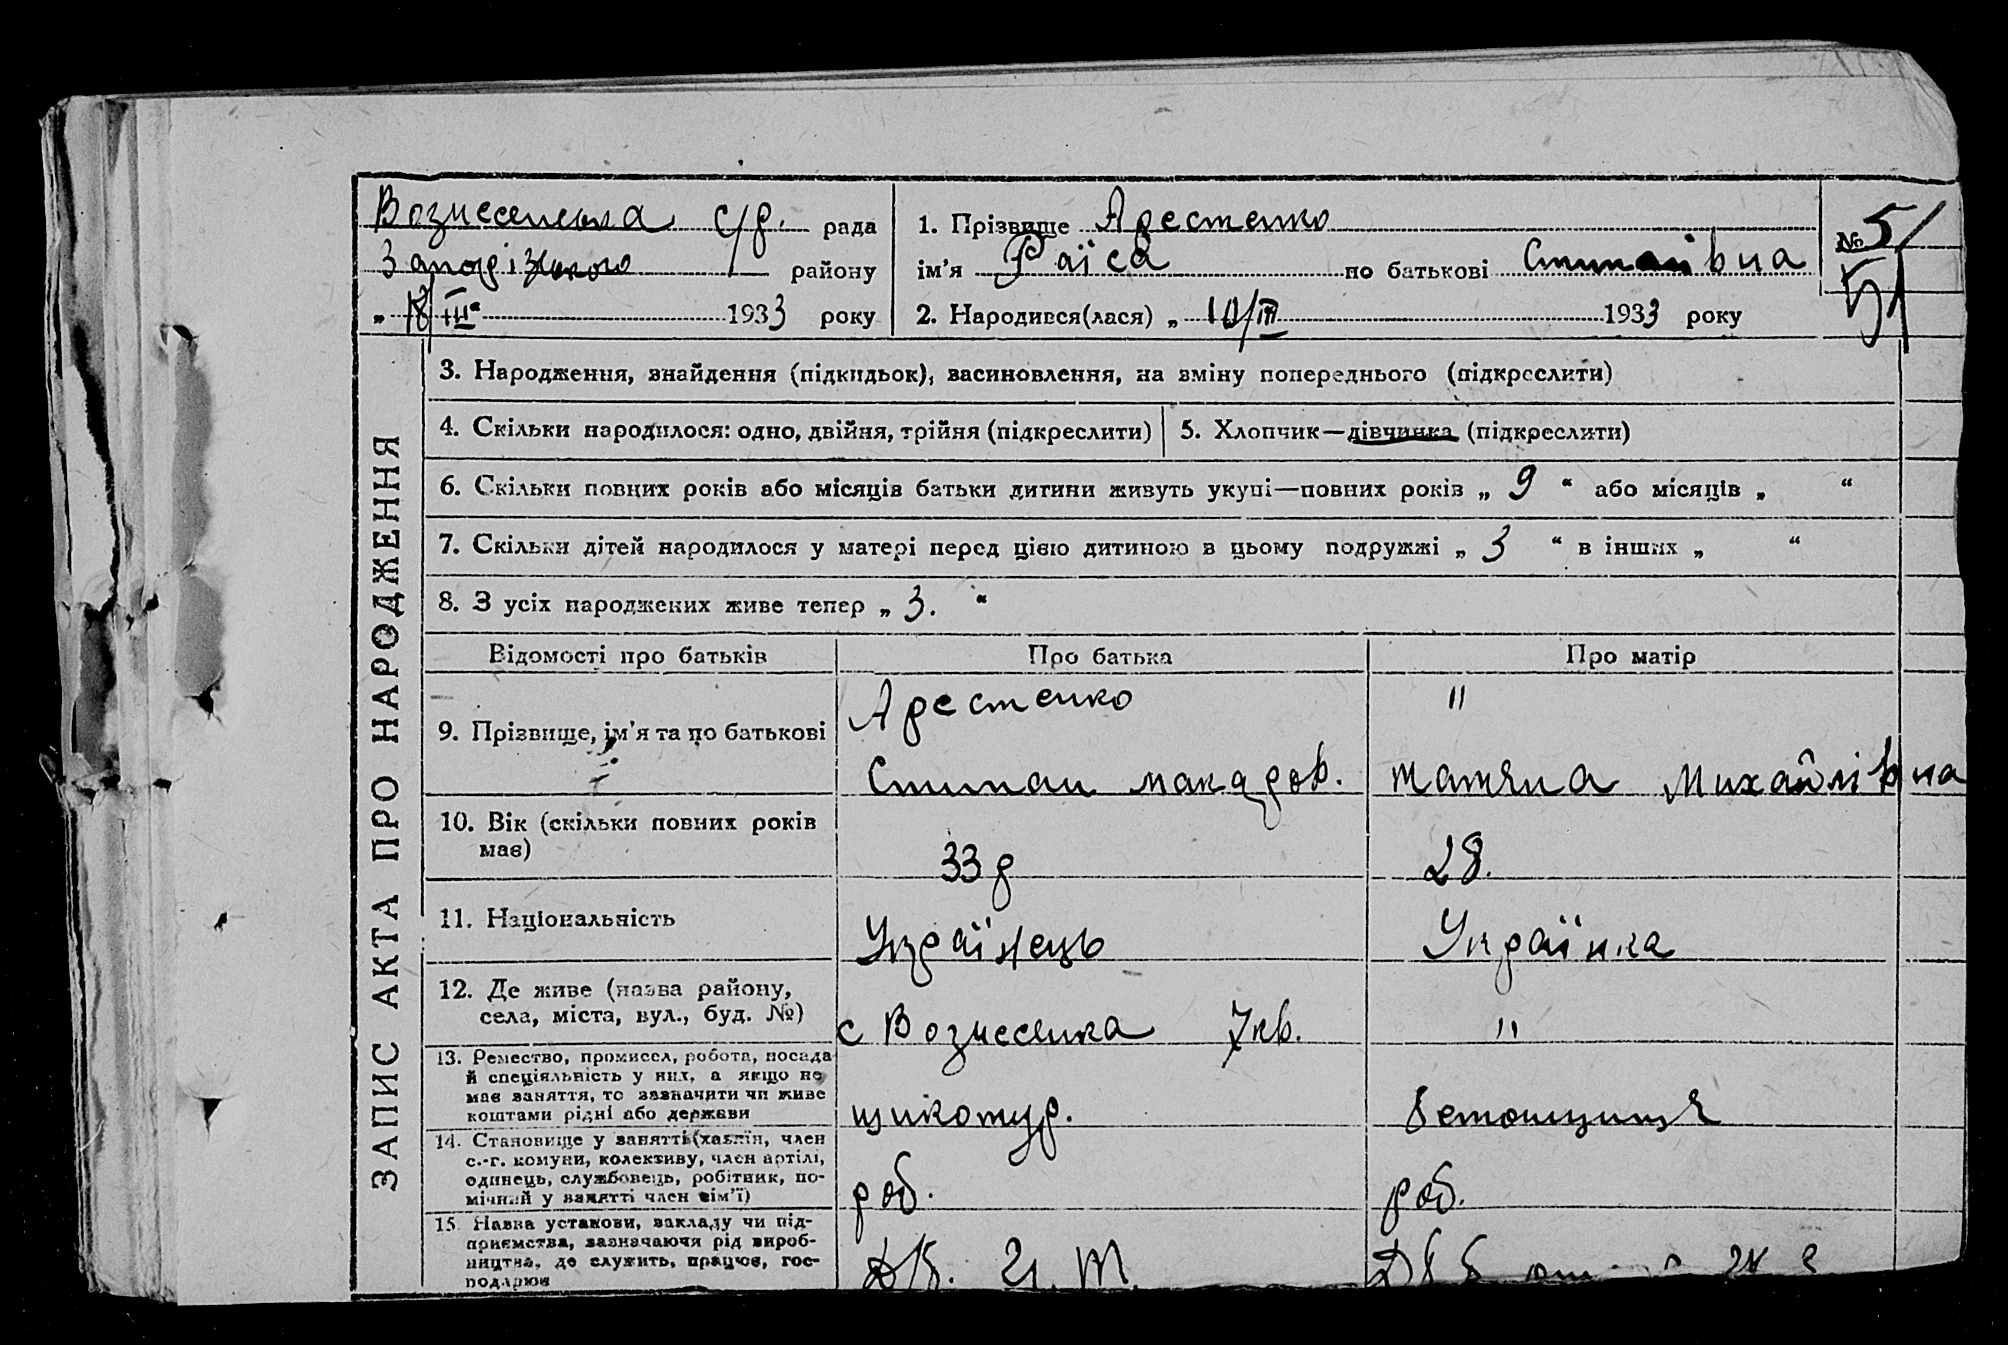 Вознесенська с/р. рада
Запорізького району
„ 18/III“ 1933 року
1. Прізвище Арестенко
ім’я Раїса по батькові Стипанівна
2. Народився(лася) „ 10/III 1933 року
№ 51
51
ЗАПИС АКТА ПРО НАРОДЖЕННЯ
3. Народження, знайдення (підкидьок), засиновлення, на зміну попереднього (підкреслити)
4. Скільки народилося: одно, двійня, трійня (підкреслити)
5. Хлопчик—дівчинка (підкреслити)
6. Скільки повних років або місяців батьки дитини живуть укупі—повних років „ 9 “ або місяців „ “
7. Скільки дітей народилося у матері перед цією дитиною в цьому подружжі „ 3 “ в інших „ “
8. З усіх народжених живе тепер „ 3. “
Відомості про батьків Про батька Про матір
9. Прізвище, ім’я та по батькові
Арестенко "
Стипан макаров. татяна Михайлівна
10. Вік (скільки повних років
має)
33 р 28.
11. Національність
Українець Українка
12. Де живе (назва району,
села, міста, вул., буд. №)
с Вознесенка 7кв. "
13. Ремество, промисел, робота, посада
й спеціяльність у них, а якщо не
має заняття, то зазначити чи живе
коштами рідні або держави
щикотур. бетонщиця
14. Становище у занятті (хазяїн, член
с.-г. комуни, колективу, член артілі,
одинець, службовець, робітник, по-
мічний у занятті член сім’ї)
роб. роб.
15. Назва установи, закладу чи під-
приємства, зазначаючи рід вироб-
ництва, де служить, працює, гос-
подарює